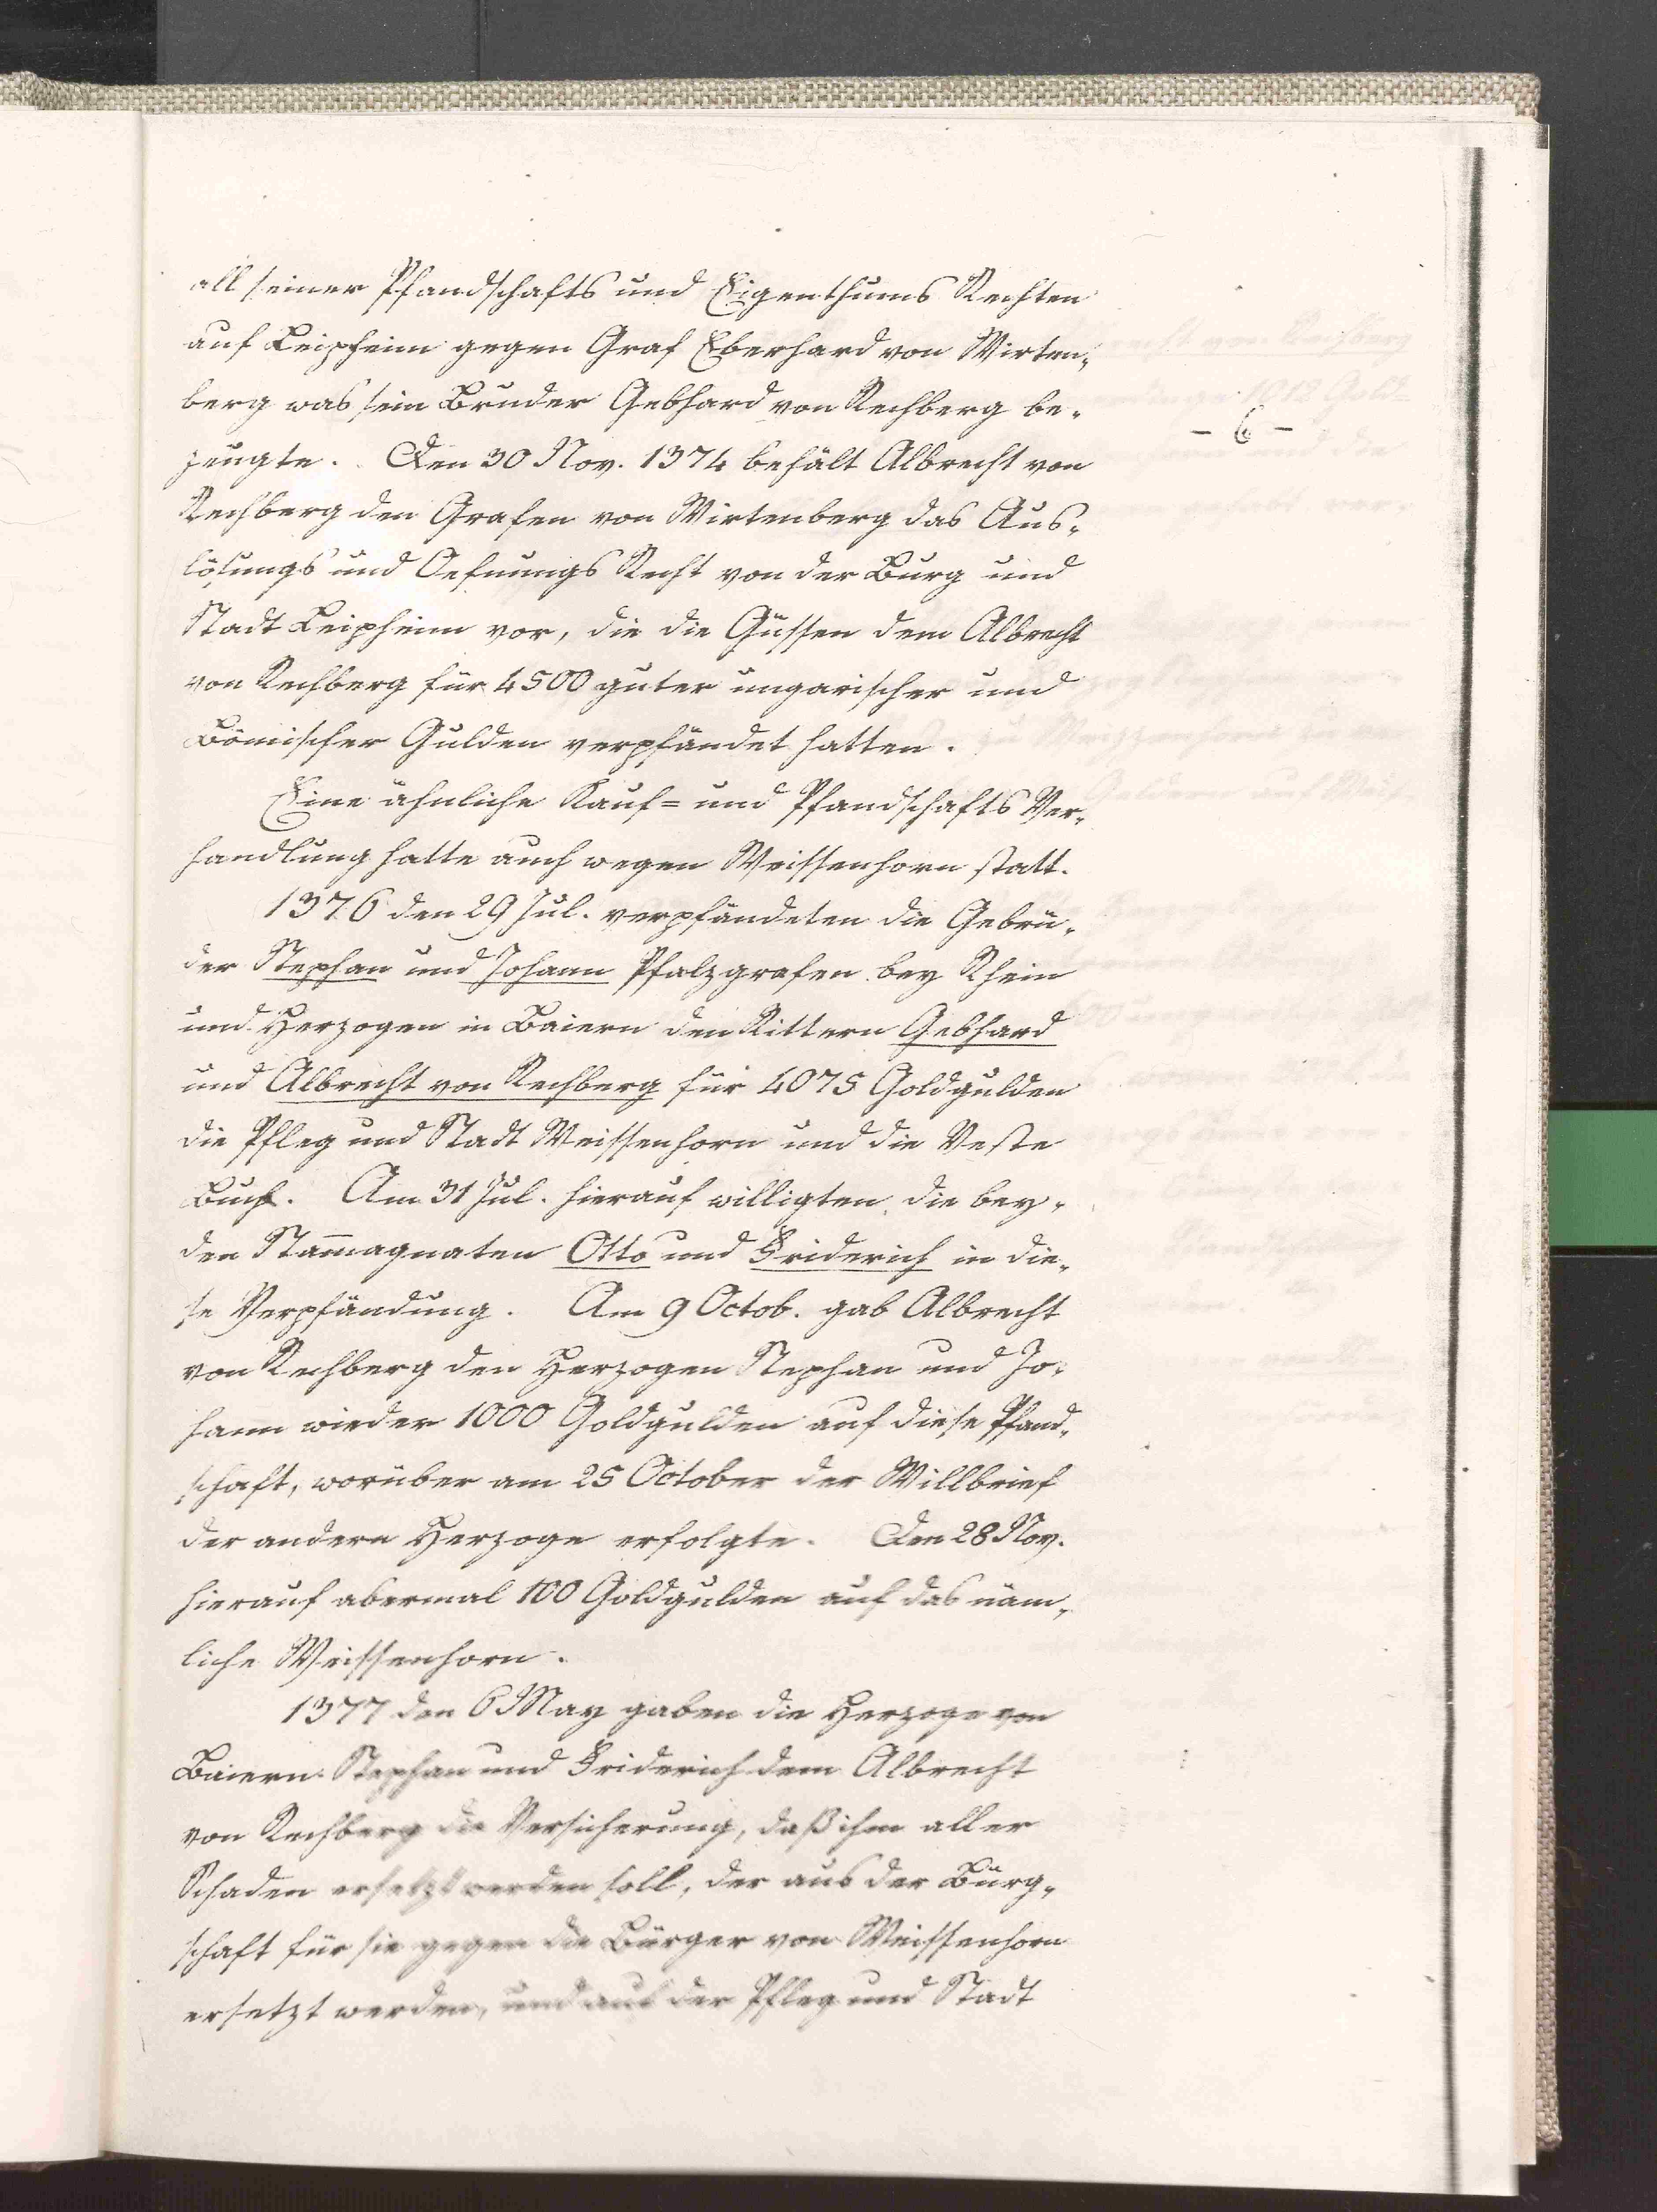 all seiner Pfandschafts und Eigenthums Rechten
auf Leipheim gegen Graf Eberhard von Wirten-
berg was sein Bruder Gebhard von Rechberg be-
zeugte. Den 30 Nov. 1374 behält Albrecht von
Rechberg den Grafen von Wirtenberg das Aus-
lösungs und Oefnungs Recht von der Burg und
Stadt Leipheim vor, die die Güssen dem Albrecht
von Rechberg für 4500 guter ungarischer und
Bömischer Gulden verpfändet hatten.
Eine ähnliche Kauf= und Pfandschafts Ver-
handlung hatte auch wegen Weissenhorn statt.
1376 den 29 Jul. verpfändeten die Gebrü-
der Stephan und Johann Pfalzgrafen bey Rhein
und Herzogen in Baiern den Rittern Gebhard
und Albrecht von Rechberg für 4075 Goldgulden
die Pfleg und Stadt Weissenhorn und die Veste
Buch. Am 31 Jul. hierauf willigten die bey-
den Stam̄agnaten Otto und Friderich in die-
se Verpfändung. Am 9 Octob. gab Albrecht
von Rechberg den Herzogen Stephan und Jo-
hann wieder 1000 Goldgulden auf diese Pfand-
schaft, worüber am 25 October der Willbrief
der andern Herzoge erfolgte. Den 28 Nov.
hierauf abermal 100 Goldgulden auf das näm-
liche Weissenhorn.
1377 den 6 May gaben die Herzoge von
Baiern Stephan und Friderich dem Albrecht
von Rechberg die Versicherung, daß ihm aller
Schaden ersetzt werden soll, der aus der Bürg-
schaft für sie gegen die Bürger von Weissenhorn
ersetzt werden, und auf der Pfleg und Stadt
- 6 -